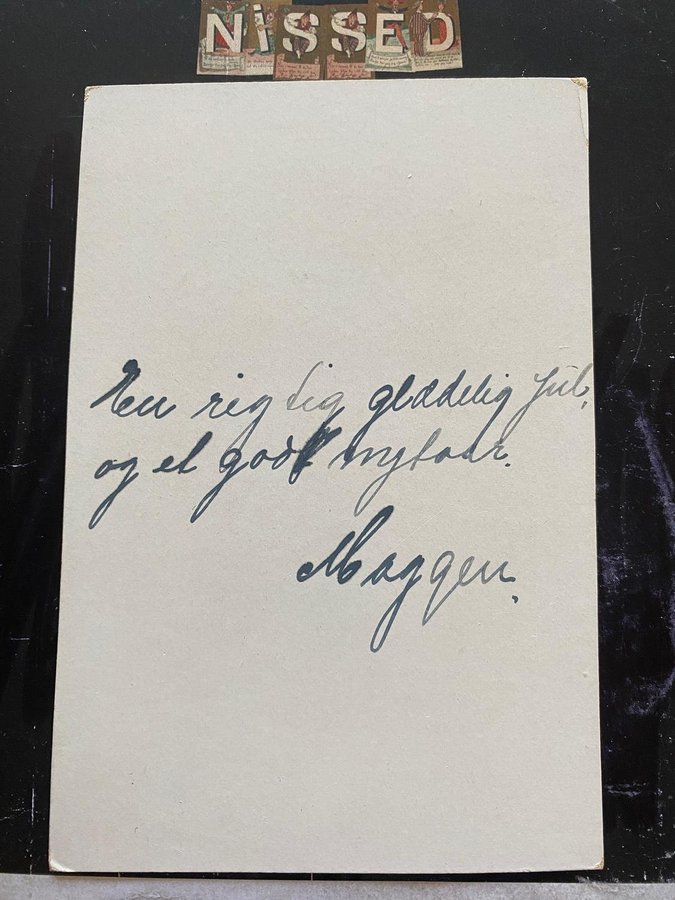 NiSSED
En rigtig glædelig Jul,
og et godt nytaar.
Maggen.